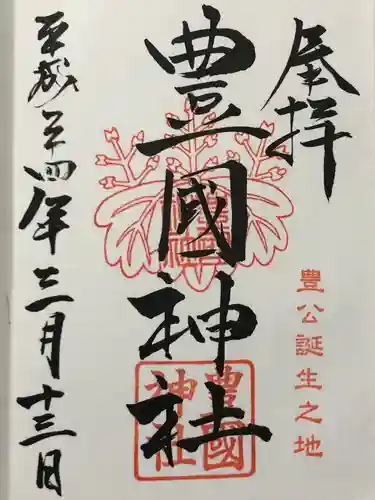 奉拝
豊公誕生之地
豊國神社
豊國神社
平成廿四年三月十三日